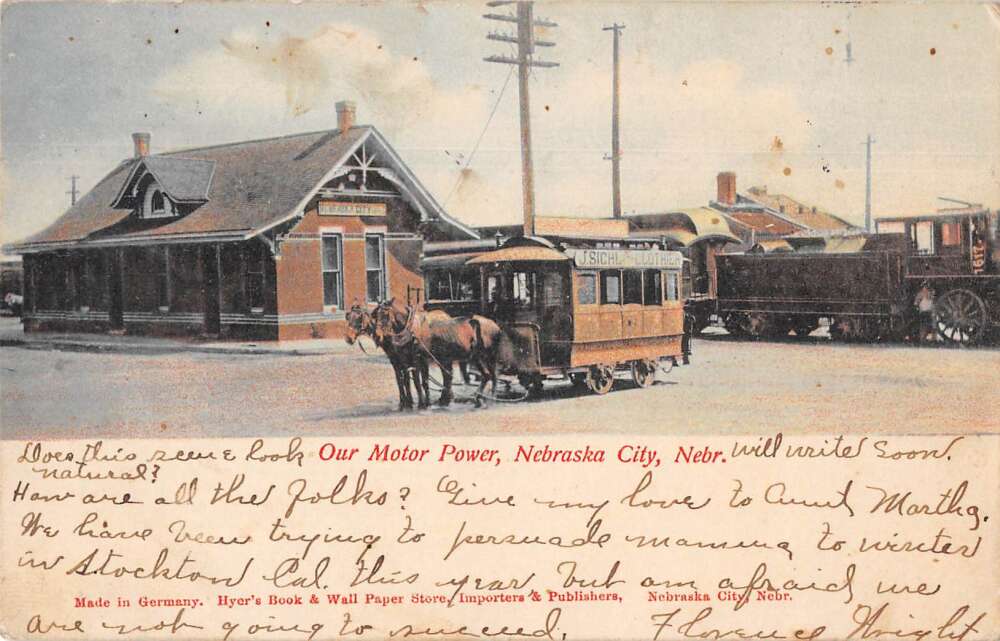 NEBRASKA CITY
J. SICHL CLOTHIER
Our Motor Power, Nebraska City, Nebr.
Does this scene look
natural?
will write soon.
How are all the folks? Give my love to Aunt Martha.
We have been trying to persuade mamma to winter
in Stockton Cal. this year but am afraid we
Made in Germany. Hyer's Book & Wall Paper Store, Importers & Publishers, Nebraska City, Nebr.
are not going to succeed. Florence Wright